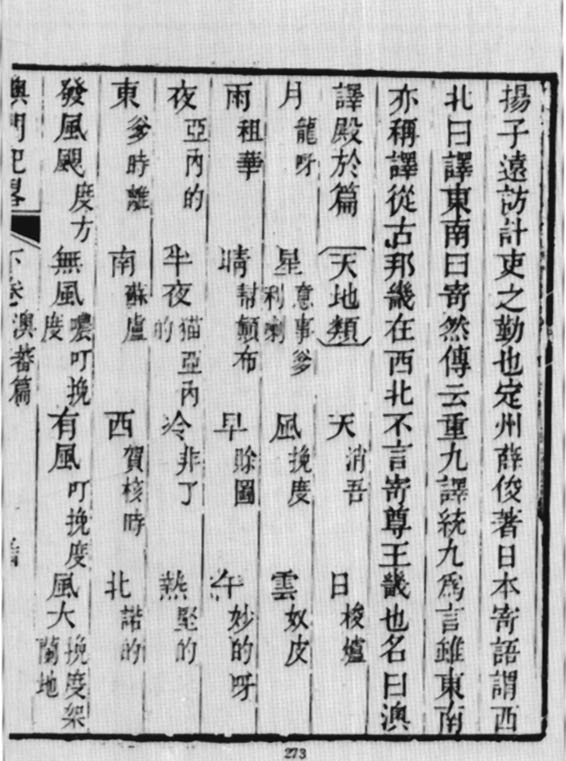 揚子遠訪計吏之勤也定州薛俊著日本寄語謂西
北曰譯東南曰寄然傳云重九譯統九爲言雖東南
亦稱譯從古邦畿在西北不言寄尊王畿也名曰澳
譯殿於篇 天地類 天消吾 日梭爐
月龍呀 星意事爹利喇 風挽度 雲奴皮
雨租華 晴幇顛布 早賒圖 午妙的呀
夜亞內的 半夜猫亞內的 冷非了 熱堅的
東爹時離 南蘇盧 西賀核時 北諾的
發風颶度方 無風噥叮挽度 有風叮挽度 風大挽度架蘭地
澳門記畧 下卷 澳蕃篇
273